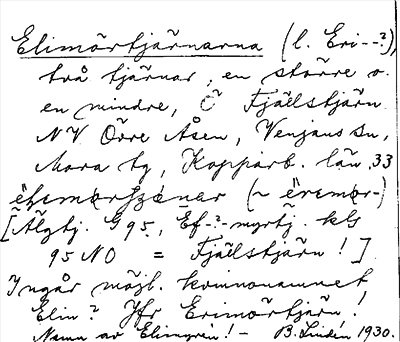 Elimörtjärnarna (l. Eri--?),
två tjärnar, en större o.
en mindre, Ö Fjällstjärn
NV Övre Åsen, Venjans sn,
Mora tg, Kopparb. län, 33
[Älgtj. G95, Ef-?-myrtj. kls
95 NO = Fjällstjärn! ]
Ingår möjl. kvinnonamnet
Elin? Jfr Erimörtjärn!
Namn av Elimyren! - B. Lindén 1930.